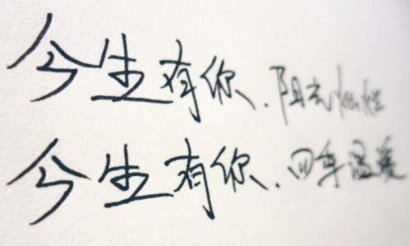 今生有你、阳光灿烂
今生有你、四季温暖